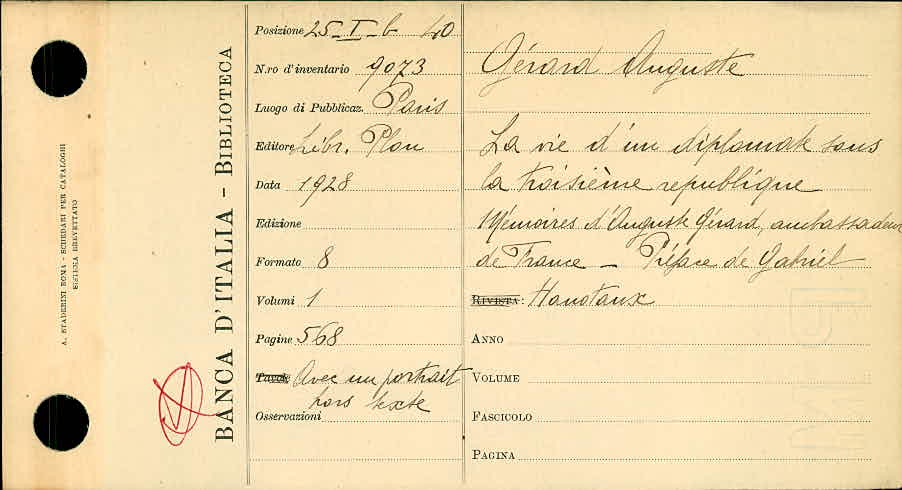 A. STADERINI ROMA - SCHEDARI PER CATALOGHI
SISTEMA BREVETTATO
BANCA D'ITALIA - BIBLIOTECA
Posizione 25-I-b 40
N.ro d'inventario 9073
Luogo di Pubblicaz. Paris
Editore Libr. Plon
Data 1928
Edizione
Formato 8
Volumi 1
Pagine 568
Tavole Avec un portrait
hors texte
Osservazioni
Gérard Auguste
La vie d'un diplomate sous
la troisième republique
Mémoires d'Auguste Gérard, ambassadeur
de France - Préface de Gabriel
RIVISTA: Hanotaux
ANNO
VOLUME
FASCICOLO
PAGINA